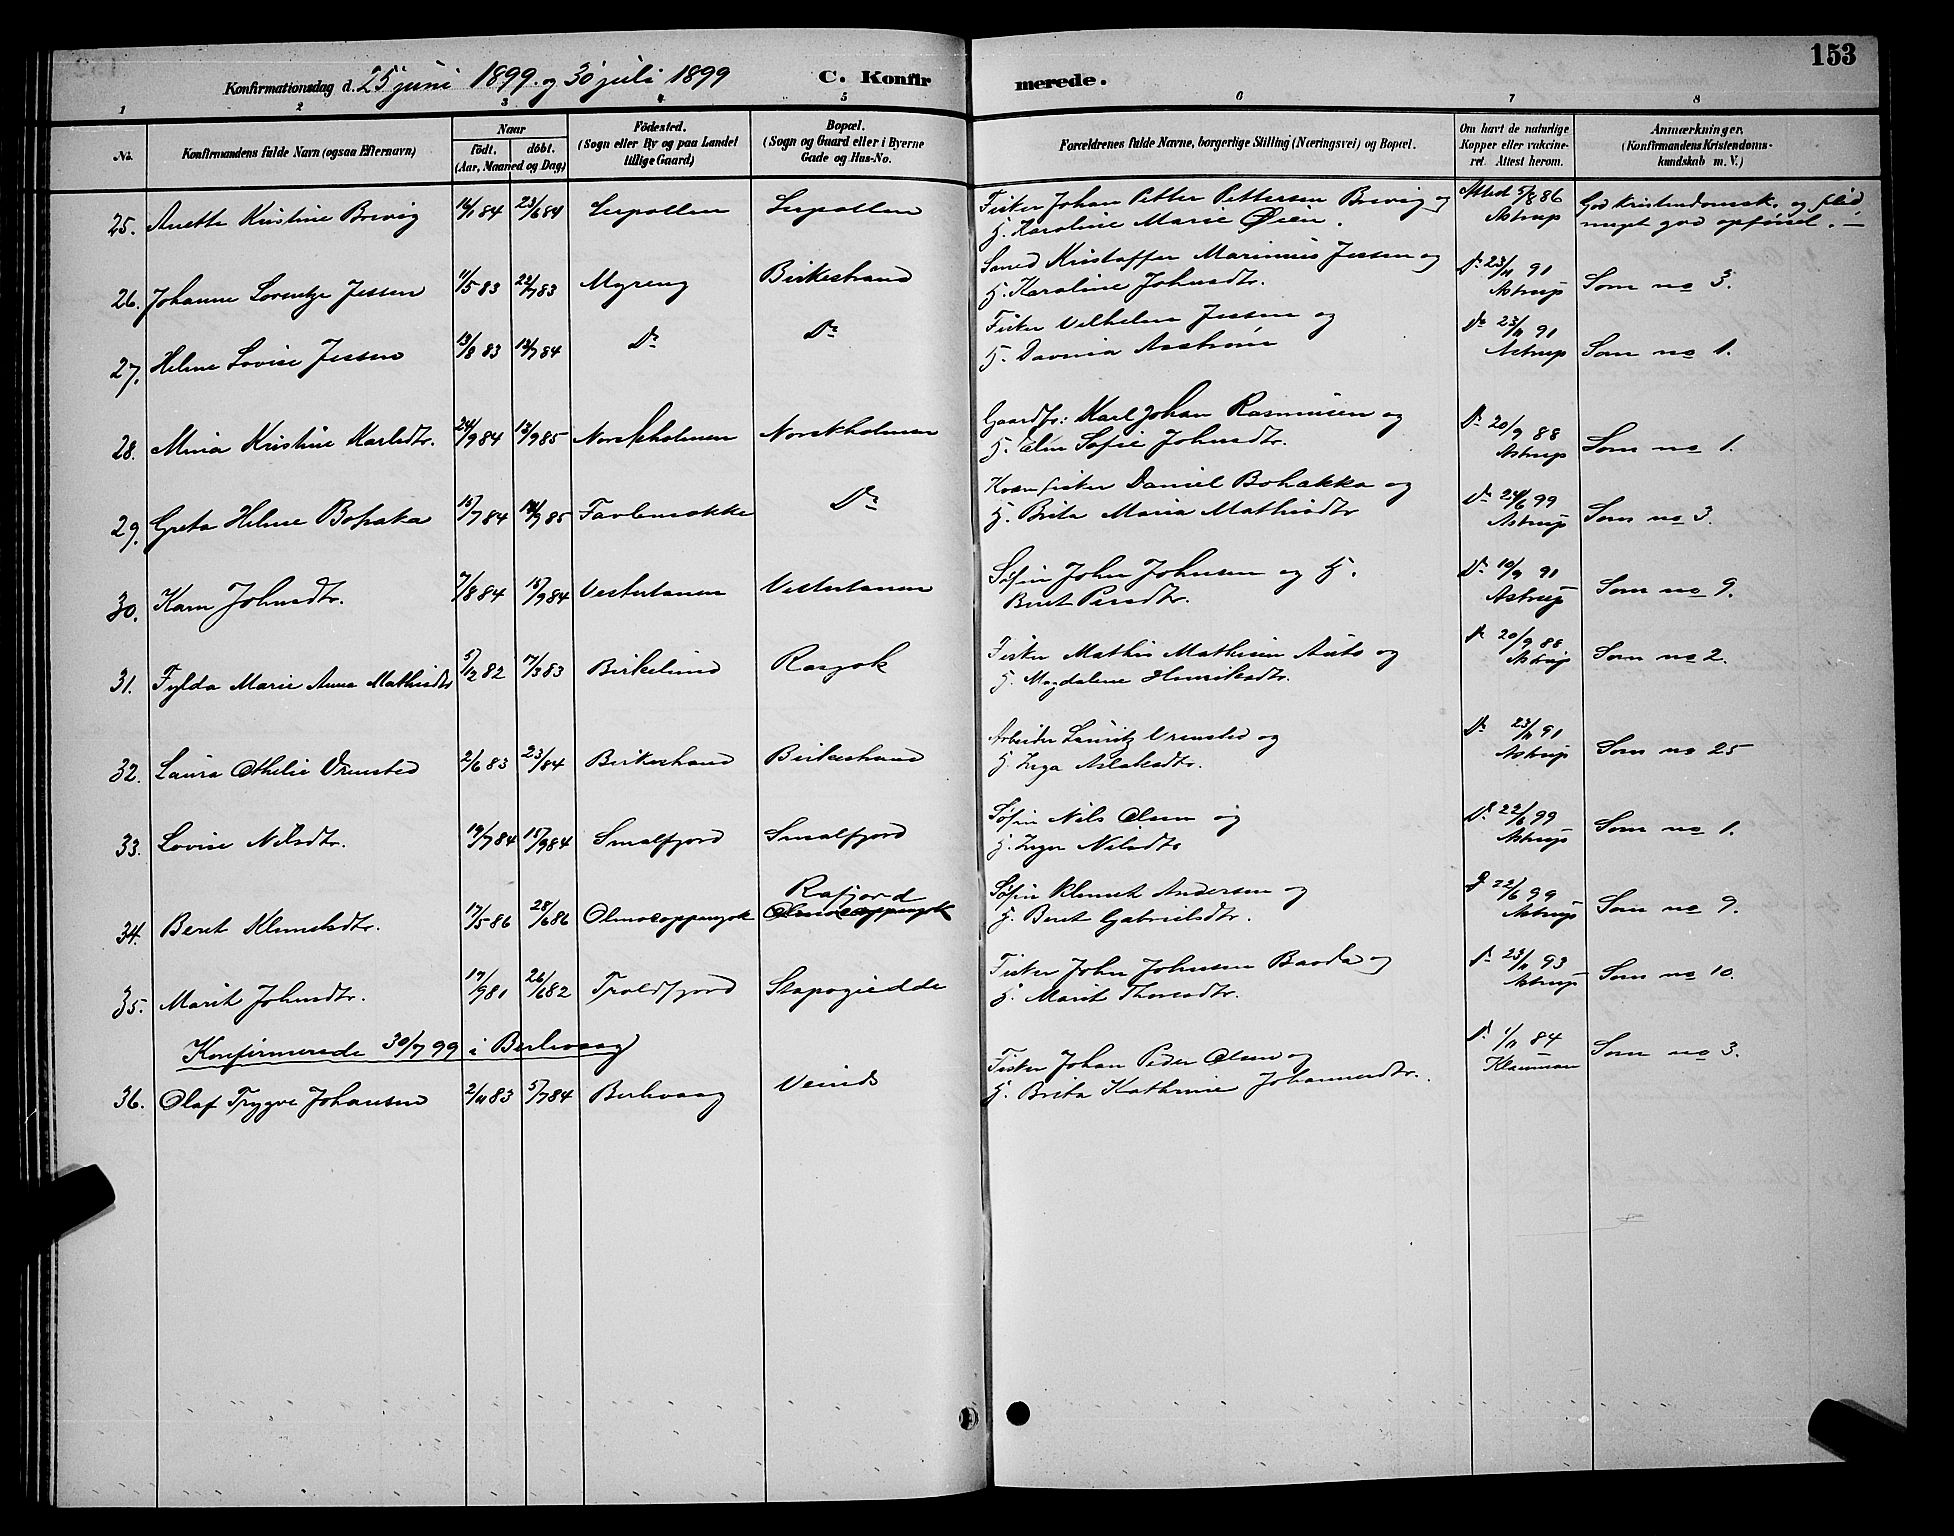 153
Konfirmationsdag d. 25 juni 1899. og 30 juli 1899 C. Konfirmerede.
1 2 3 4 5 6 7 8
No. Konfirmandens fulde Navn (ogsaa Efternavn) Naar födt. döbt. (Aar, Maaned og Dag) Födested. (Sogn eller By og paa Landet tillige Gaard) Bopæl. (Sogn og Gaard eller i Byerne Gade og Hus-No. Forældrenes fulde Navne, borgerlige Stilling (Næringsvei) og Bopæl. Om havt de naturlige Kopper eller vakcineret. Attest herom. Anmærkninger, (Konfirmandens Kristendomskundskab m. V.)
25. Anette Kristine Brevig 16/1 84 23/6 84 Leerpollen Leerpollen Fisker Johan Petter Pettersen Brevig og
H. Karoline Marie Øien. Attest 5/8 86 Astrup God Kristendomsk. og flid
meget god opførsel. —
26. Johanne Lorentze Jessen 11/5 83 22/7 83 Myreng Birkestrand Kristoffer Marinius Jessen og
H. Karoline Johnsdtr. Do 23/11 91 Astrup Som no 3.
27. Helene Lovise Jessen 13/8 83 13/7 84 Do Do Fisker Vilhelm Jessen og
H. Davinia Do 23/11 91 Astrup Som no 1.
28. Mina Kristine Karlsdtr. 24/9 84 13/9 85 Norskholmen Norskholmen Gaardbr: Karl Johan Rasmussen og
H. Elen Sofie Johnsdtr. Do 20/9 88 Astrup Som no 1.
29. Greta Helene Bohaka 15/7 84 85 Do Kvæn fisker Daniel Bohakka og
H. Brita Maria Mathisdtr Do 24/6 99 Astrup Som no 3.
30. Karn Johnsdtr. 7/8 84 15/9 84 Vestertanen Vestertanen Søfin John Johnsen og H.
Beret Persdtr. Do 10/9 91 Astrup Som no 9.
31. Fylda Marie Anna Mathisdtr 5/12 82 7/3 83 Birkelund Fisker Mathis Mathisen og
H. Magdalene Henriksdtr. Do 20/9 88 Astrup Som no 2.
32. Laura Othelie Vrensted 2/6 83 23/ 84 Birkestrand Birkestrand Arbeider Lauritz Vrensted og
H. Inga Aslaksdtr. Do 23/11 91 Astrup Som no 25
33. Lovise Nilsdtr. 19/7 84 15/9 84 Smalfjord Smalfjord Søfin Nils Olsen og
H. Inger Nilsdtr Do 22/6 99 Astrup Som no 1.
34. Beret Klemetsdtr. 17/5 86 28/6 86 Rafjord Søfin Klemet Andersen og
H. Beret Gabrielsdtr. Do 22/6 99 Astrup Som no 9.
35. Marit Johnsdtr. 19/9 81 26/6 82 Troldfjord Stapogiedde Fisker John Johnsen og
H. Marit Thoresdtr. Do 23/11 93 Astrup Som no 10.
Konfirmerede 30/7 99 i Berlevaag
36. Olaf Trygve Johansen 2/11 83 5/7 84 Berlevaag Fisker Johan Peder Olsen og
H. Brita Kathrine Johannesdtr. Do 1/11 84 Som no 3.